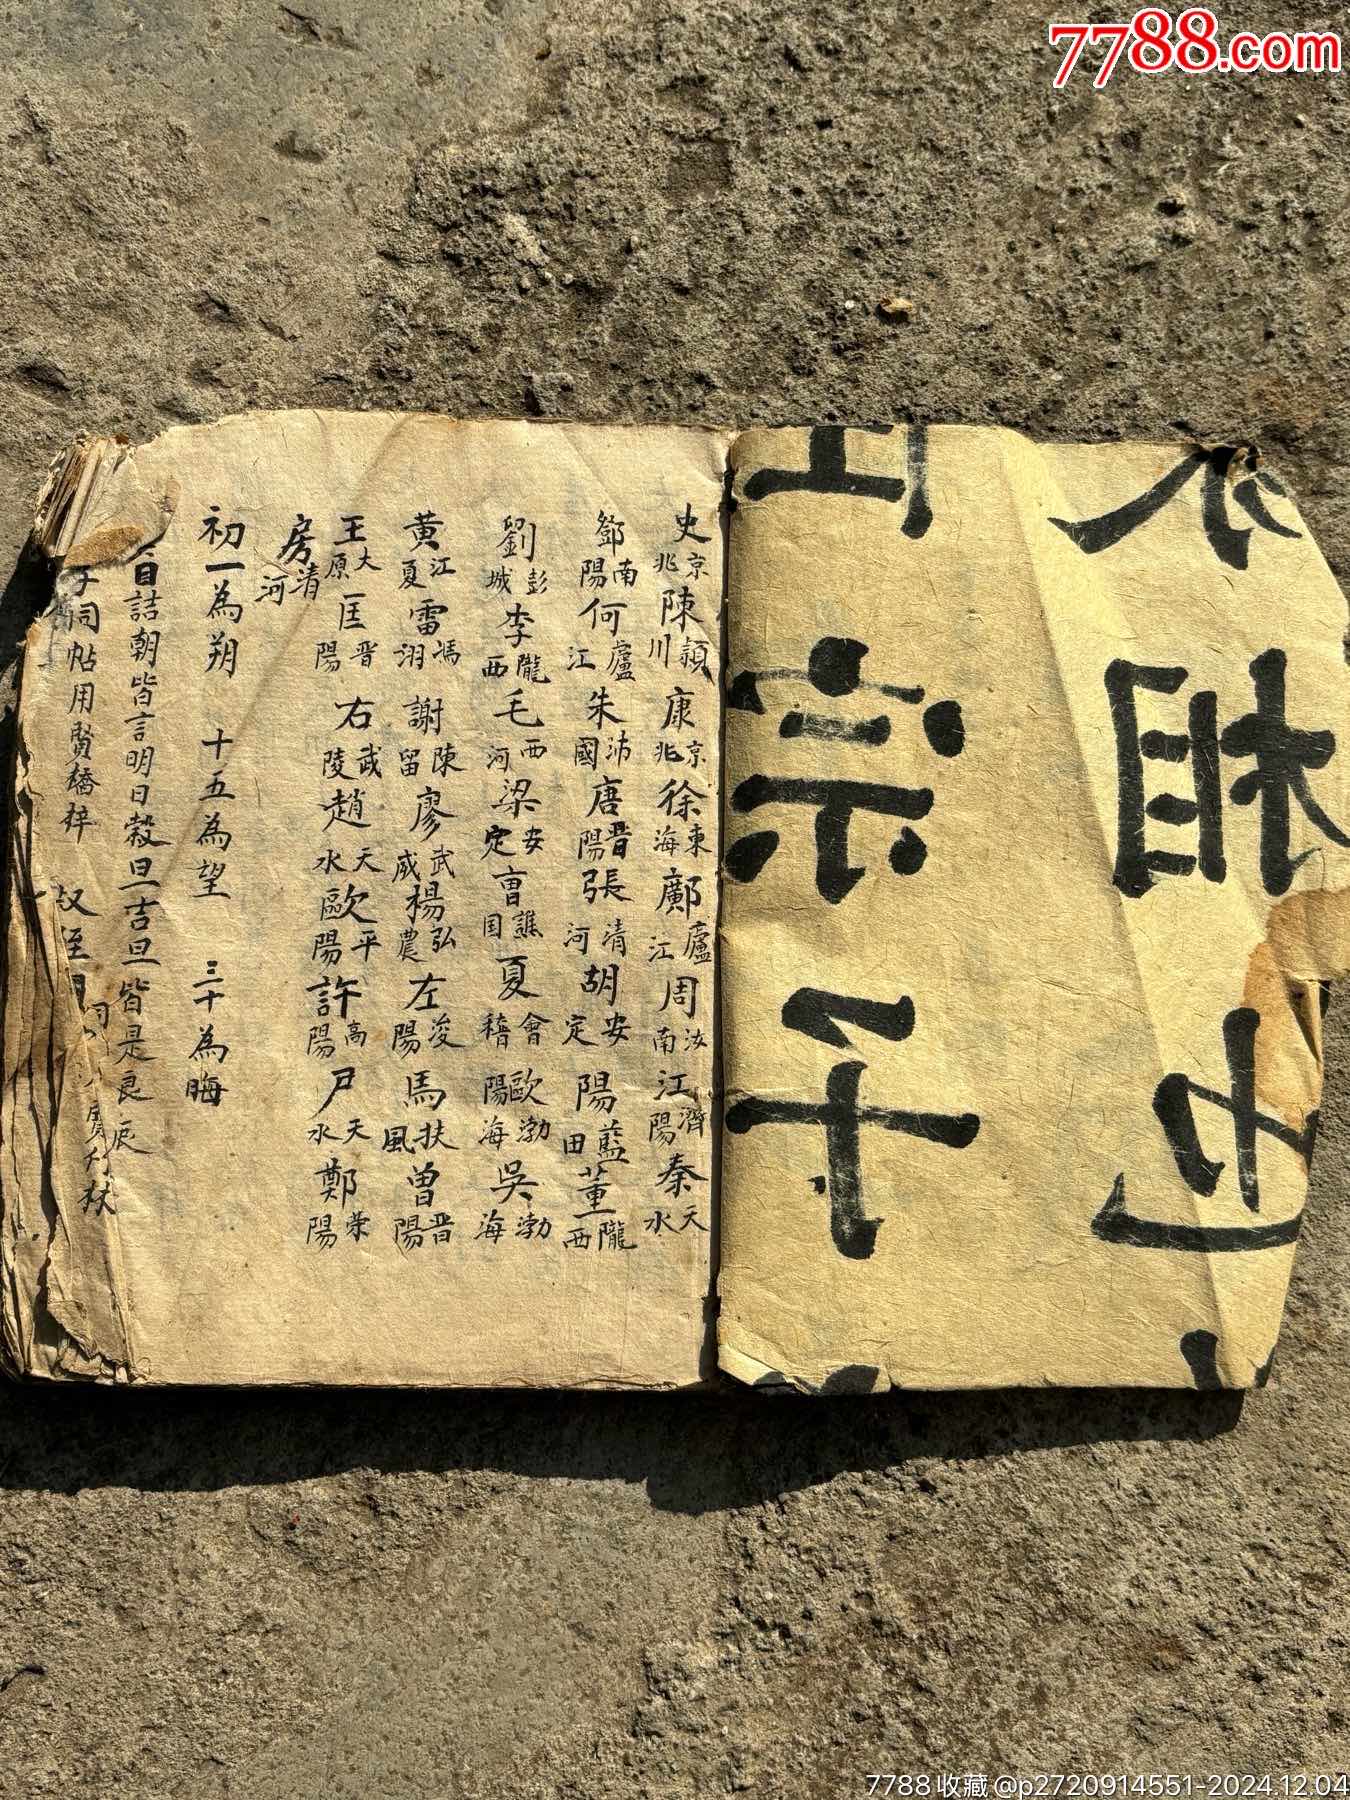 7788.com
宗子
相
史京兆 陳潁川 康京兆 徐東海 鄺廬江 周汝南 江濟陽 秦天水
鄧南陽 何廬江 朱沛國 唐晋陽 張清河 胡安定 陽藍田 董隴西
劉彭城 李隴西 毛西河 梁安定 曺譙国 夏會稽 歐陽渤海 吳渤海
黃江夏 雷馮翊 謝陳留 廖武威 楊弘農 左浚陽 馬扶風 曾晋陽
王大原 匡晋陽 右武陵 趙天水 歐平陽 許高陽 尸天水 鄭荣陽
房清河
初一為朔 十五為望 三十為晦
詰朝皆言明日穀旦吉旦皆是良辰
帖用賢橋梓
7788收藏@p2720914551-2024.12.04